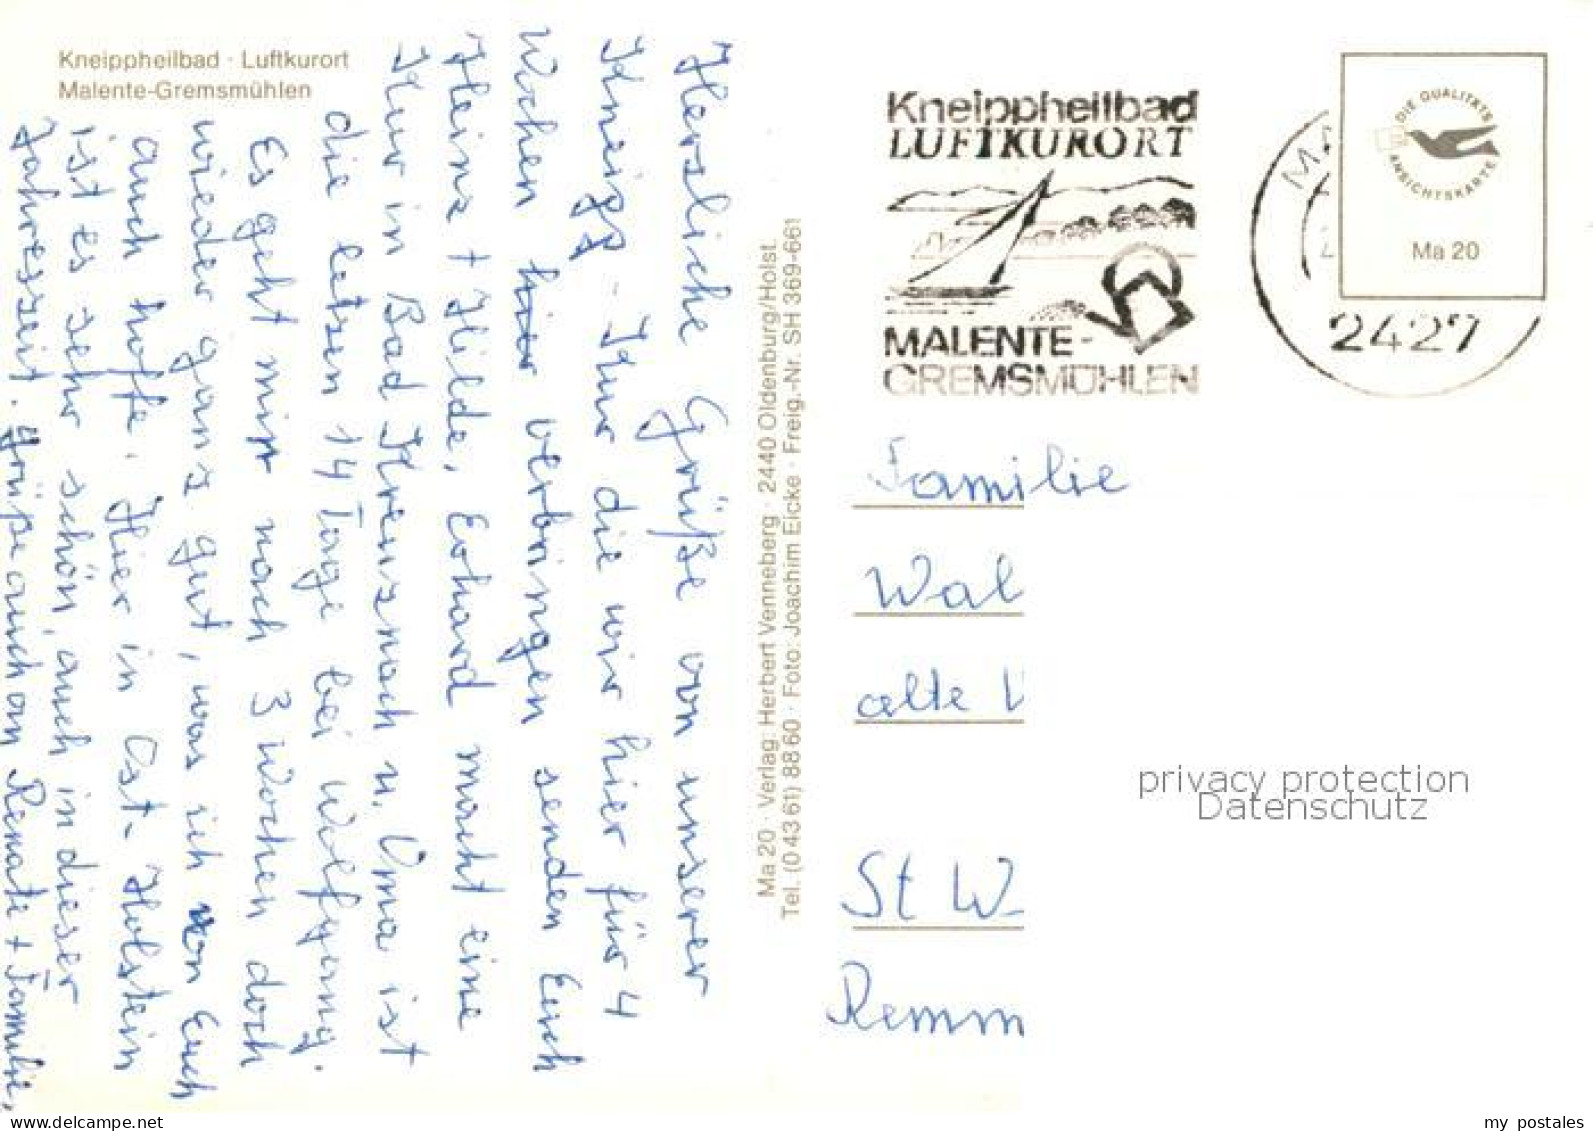 Kneippheilbad · Luftkurort
Malente-Gremsmühlen
Herzliche Grüße von unserer
Kneipp - Kur die wir hier für 4
Wochen hier verbringen senden Euch
Heinz + Hilde. Erhard macht eine
Kur in Bad Kreuznach u. Oma ist
die letzen 14 Tage bei Wolfgang.
Es geht mir nach 3 Wochen doch
wieder ganz gut, was ich von Euch
auch hoffe. Hier in Ost-Holstein
ist es sehr schön, auch in dieser
Jahreszeit. Grüße auch an Renate + Familie,
Ma 20 · Verlag: Herbert Venneberg · 2440 Oldenburg/Holst.
Tel. (0 43 61) 88 60 · Foto: Joachim Eicke · Freig.-Nr. SH 369-661
Kneippheilbad
LUFTKURORT
MALENTE-
GREMSMÜHLEN
2427
DIE QUALITÄTS
ANSICHTSKARTE
Ma 20
Familie
Wal
alte
St W
Remm
privacy protection
Datenschutz
www.delcampe.net
my postales